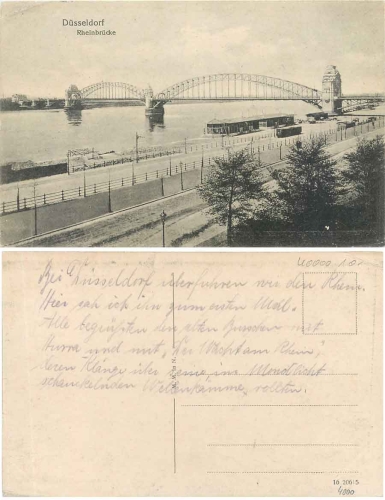 Düsseldorf
Rheinbrücke
40000 1.0
Bei Düsseldorf überfuhren wir den Rhein.
Hier sah ich ihn zum ersten Mal.
Alle begrüßten den alten
mit
Hurra und mit „Die Wacht am Rhein",
deren Klänge über seine, im Mondlicht
schaukelnden Wellenkämme, rollten.
16 206/5
4000